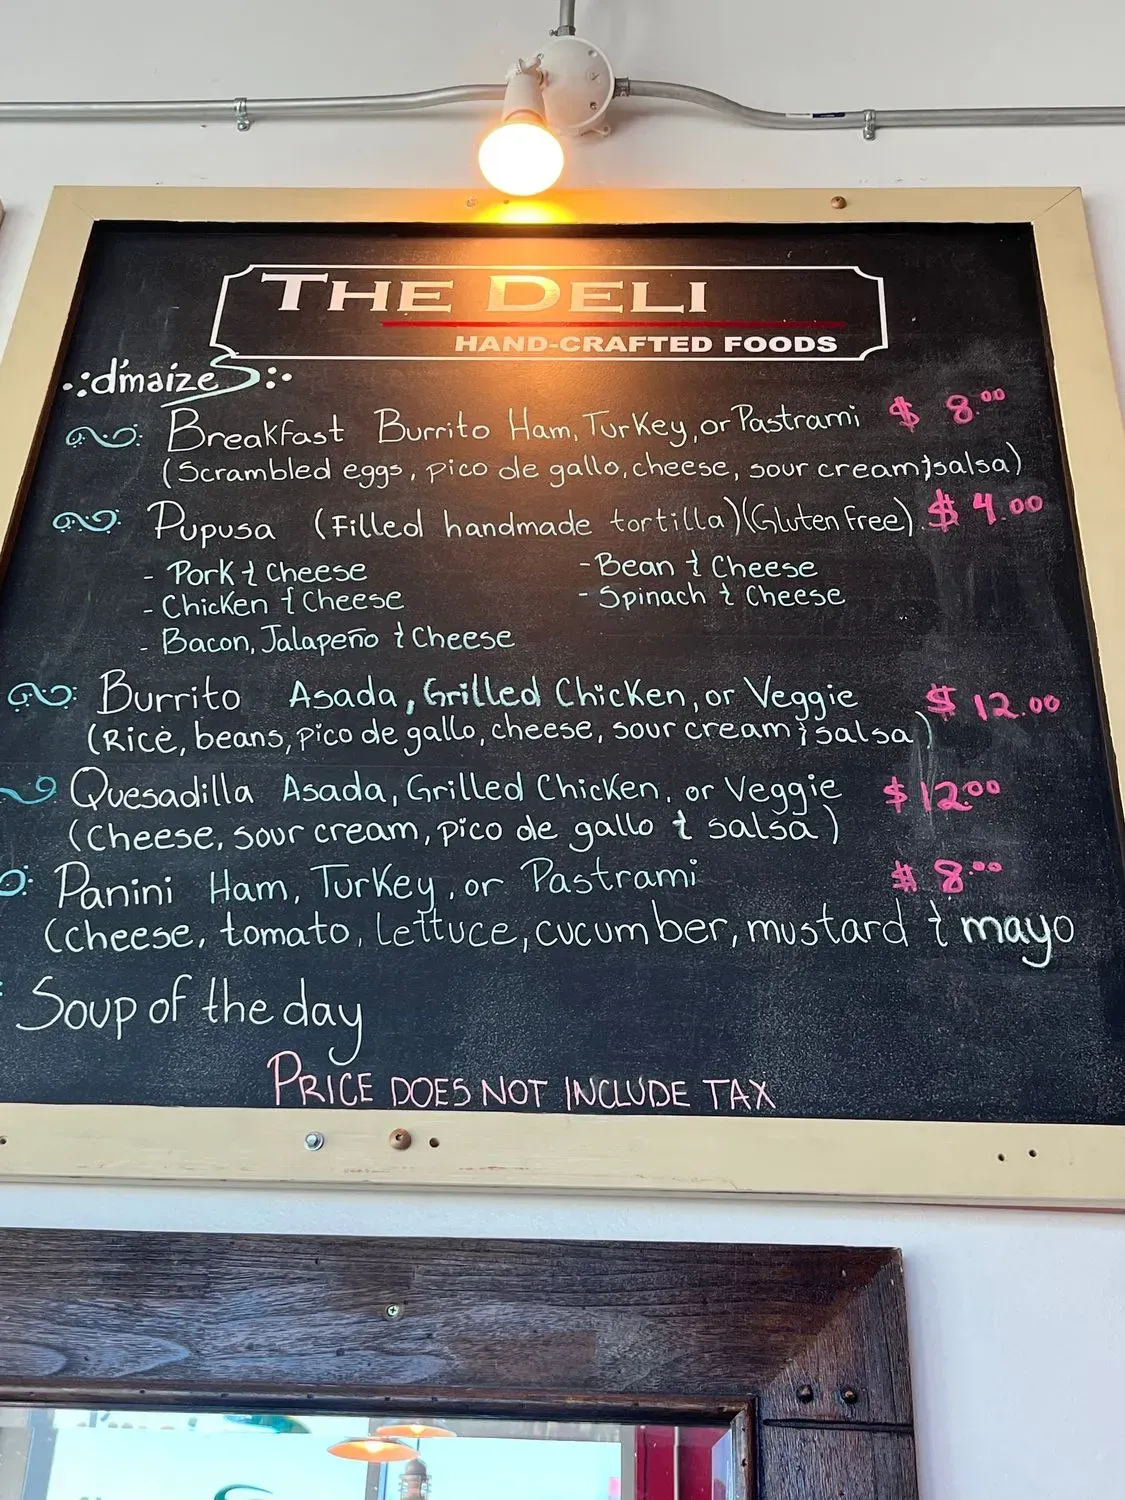 THE DELI
HAND-CRAFTED FOODS
d'maize
Breakfast Burrito Ham, Turkey, or Pastrami $ 8.00
(Scrambled eggs, pico de gallo, cheese, sour cream & salsa)
Pupusa (Filled handmade tortilla) (Gluten Free) $ 4.00
- Pork & Cheese - Bean & Cheese
- Chicken & Cheese - Spinach & Cheese
- Bacon, Jalapeño & Cheese
Burrito Asada, Grilled Chicken, or Veggie $ 12.00
(Rice, beans, pico de gallo, cheese, sour cream & salsa)
Quesadilla Asada, Grilled Chicken, or Veggie $ 12.00
(Cheese, sour cream, pico de gallo & salsa)
Panini Ham, Turkey, or Pastrami $ 8.00
(Cheese, tomato, Lettuce, cucumber, mustard & mayo
Soup of the day
PRICE DOES NOT INCLUDE TAX